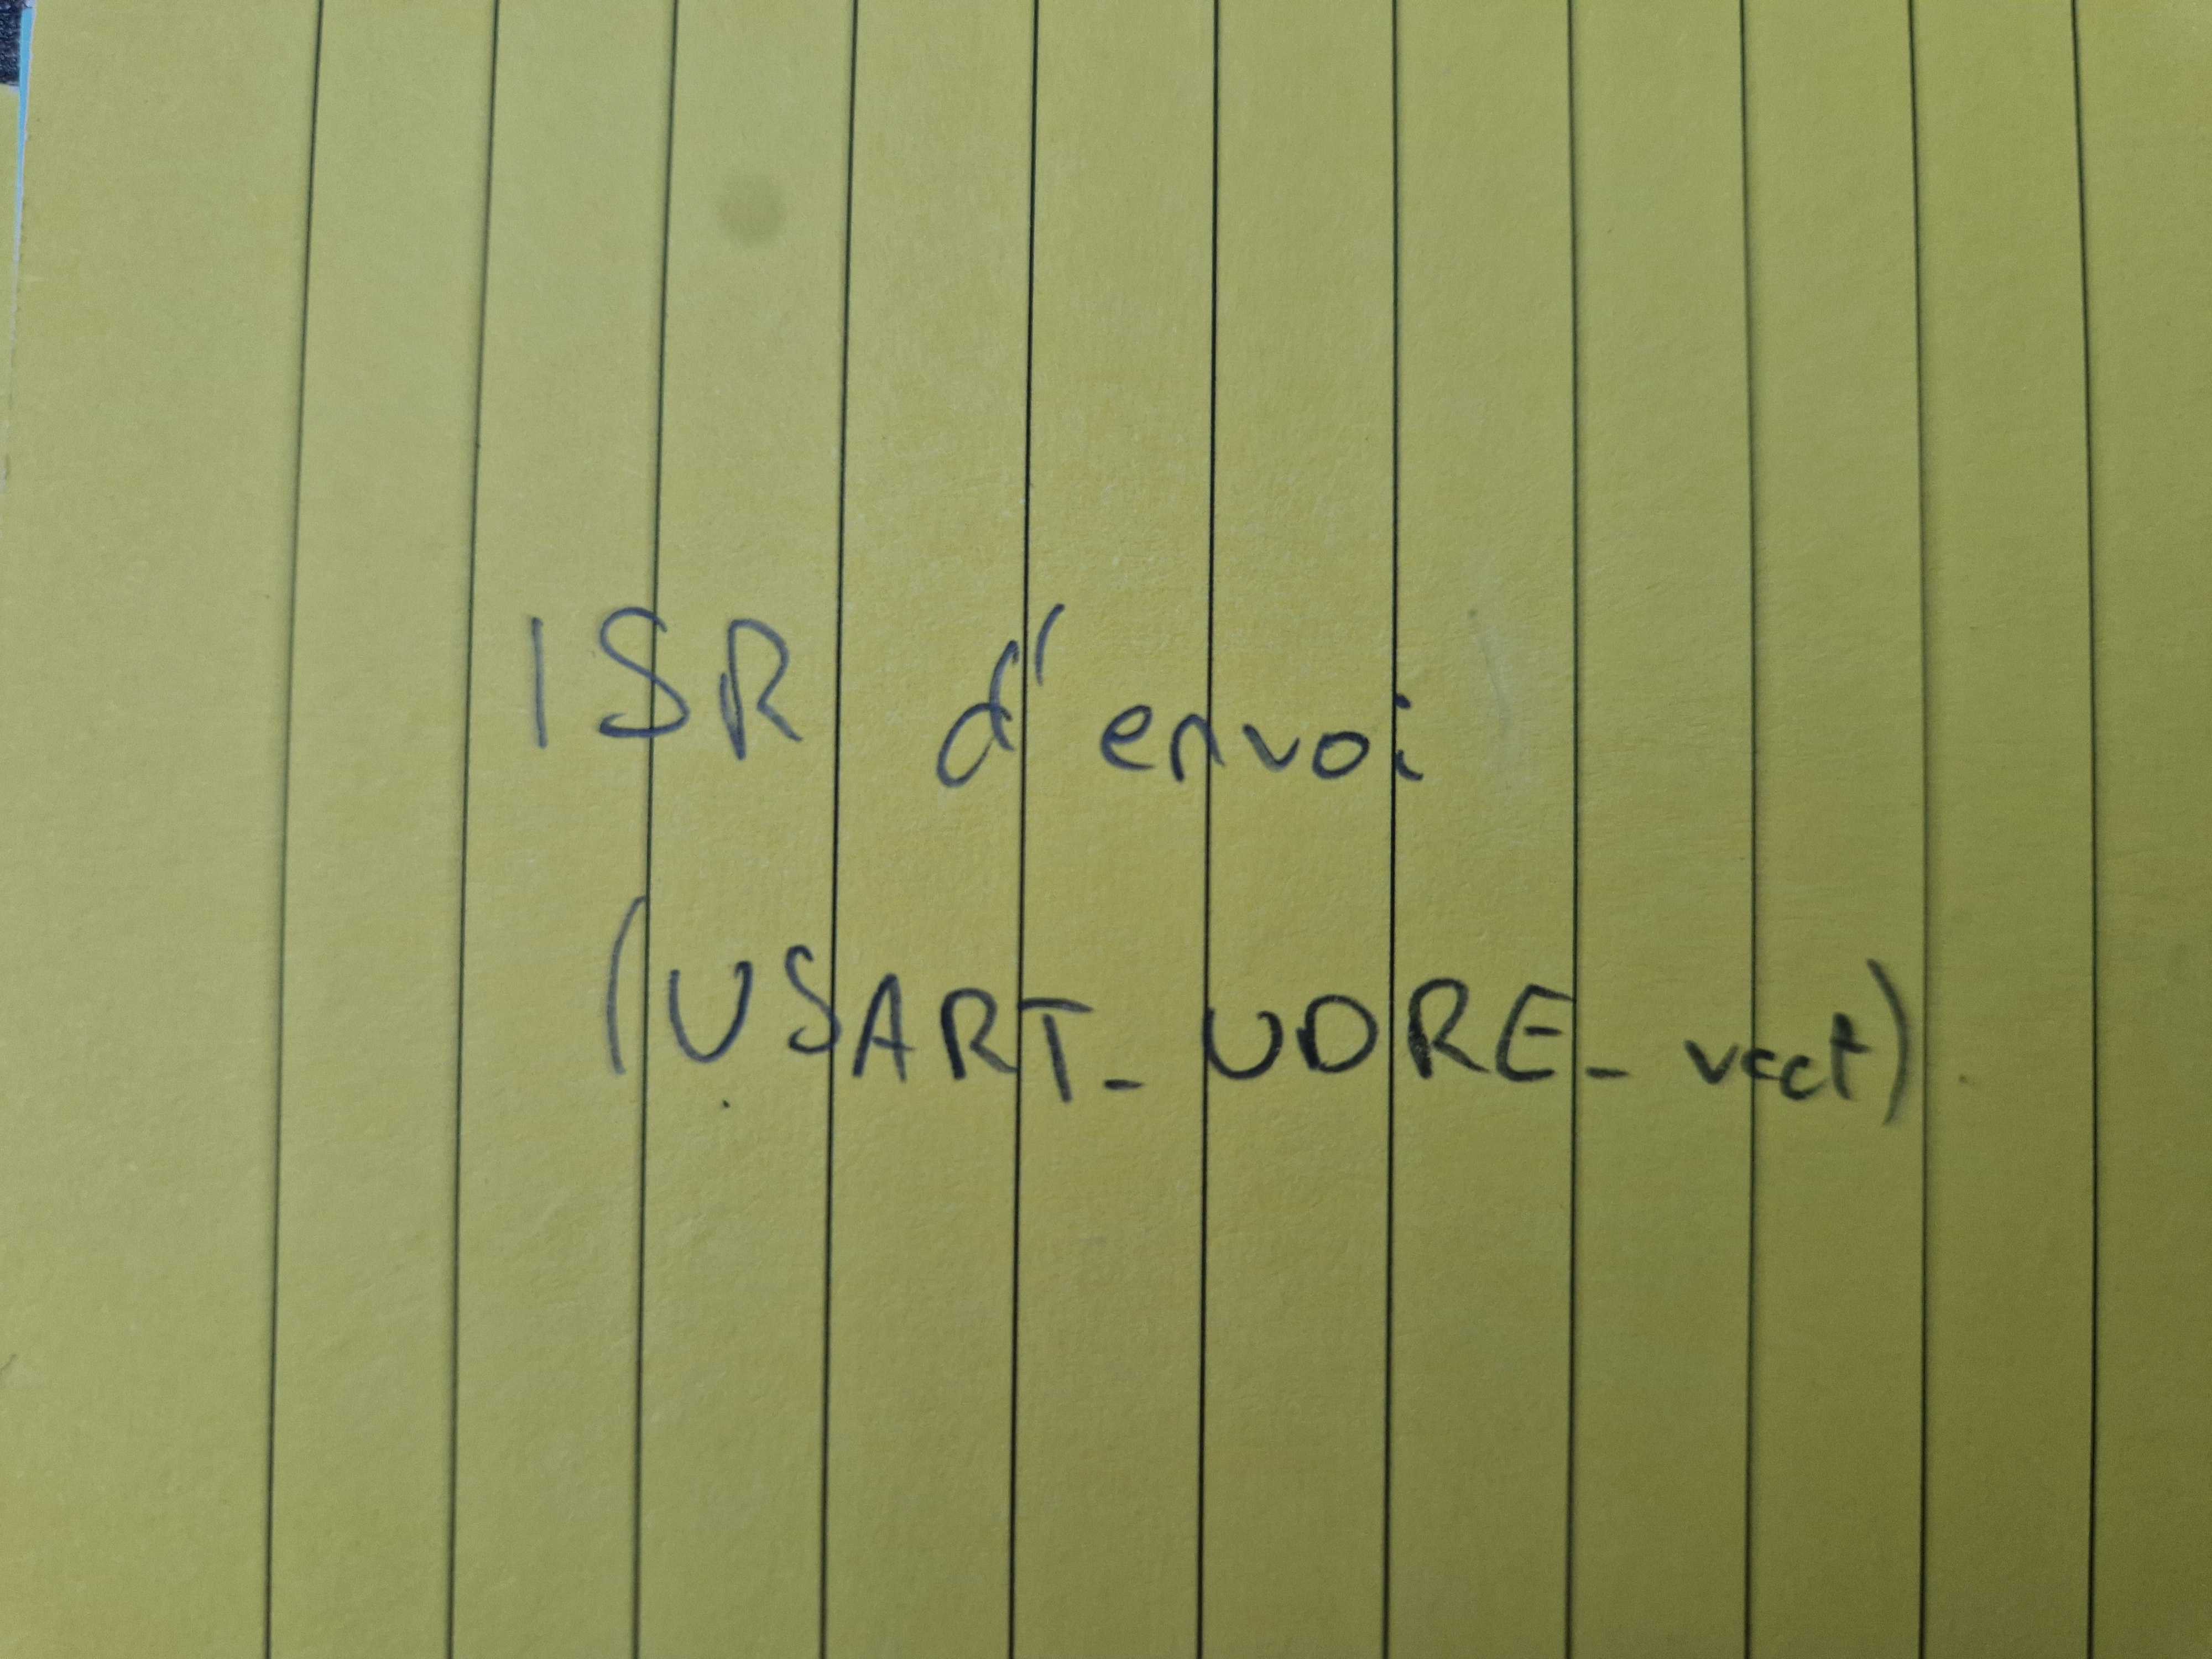 ISR d'envoi
(USART_UDRE_vect)